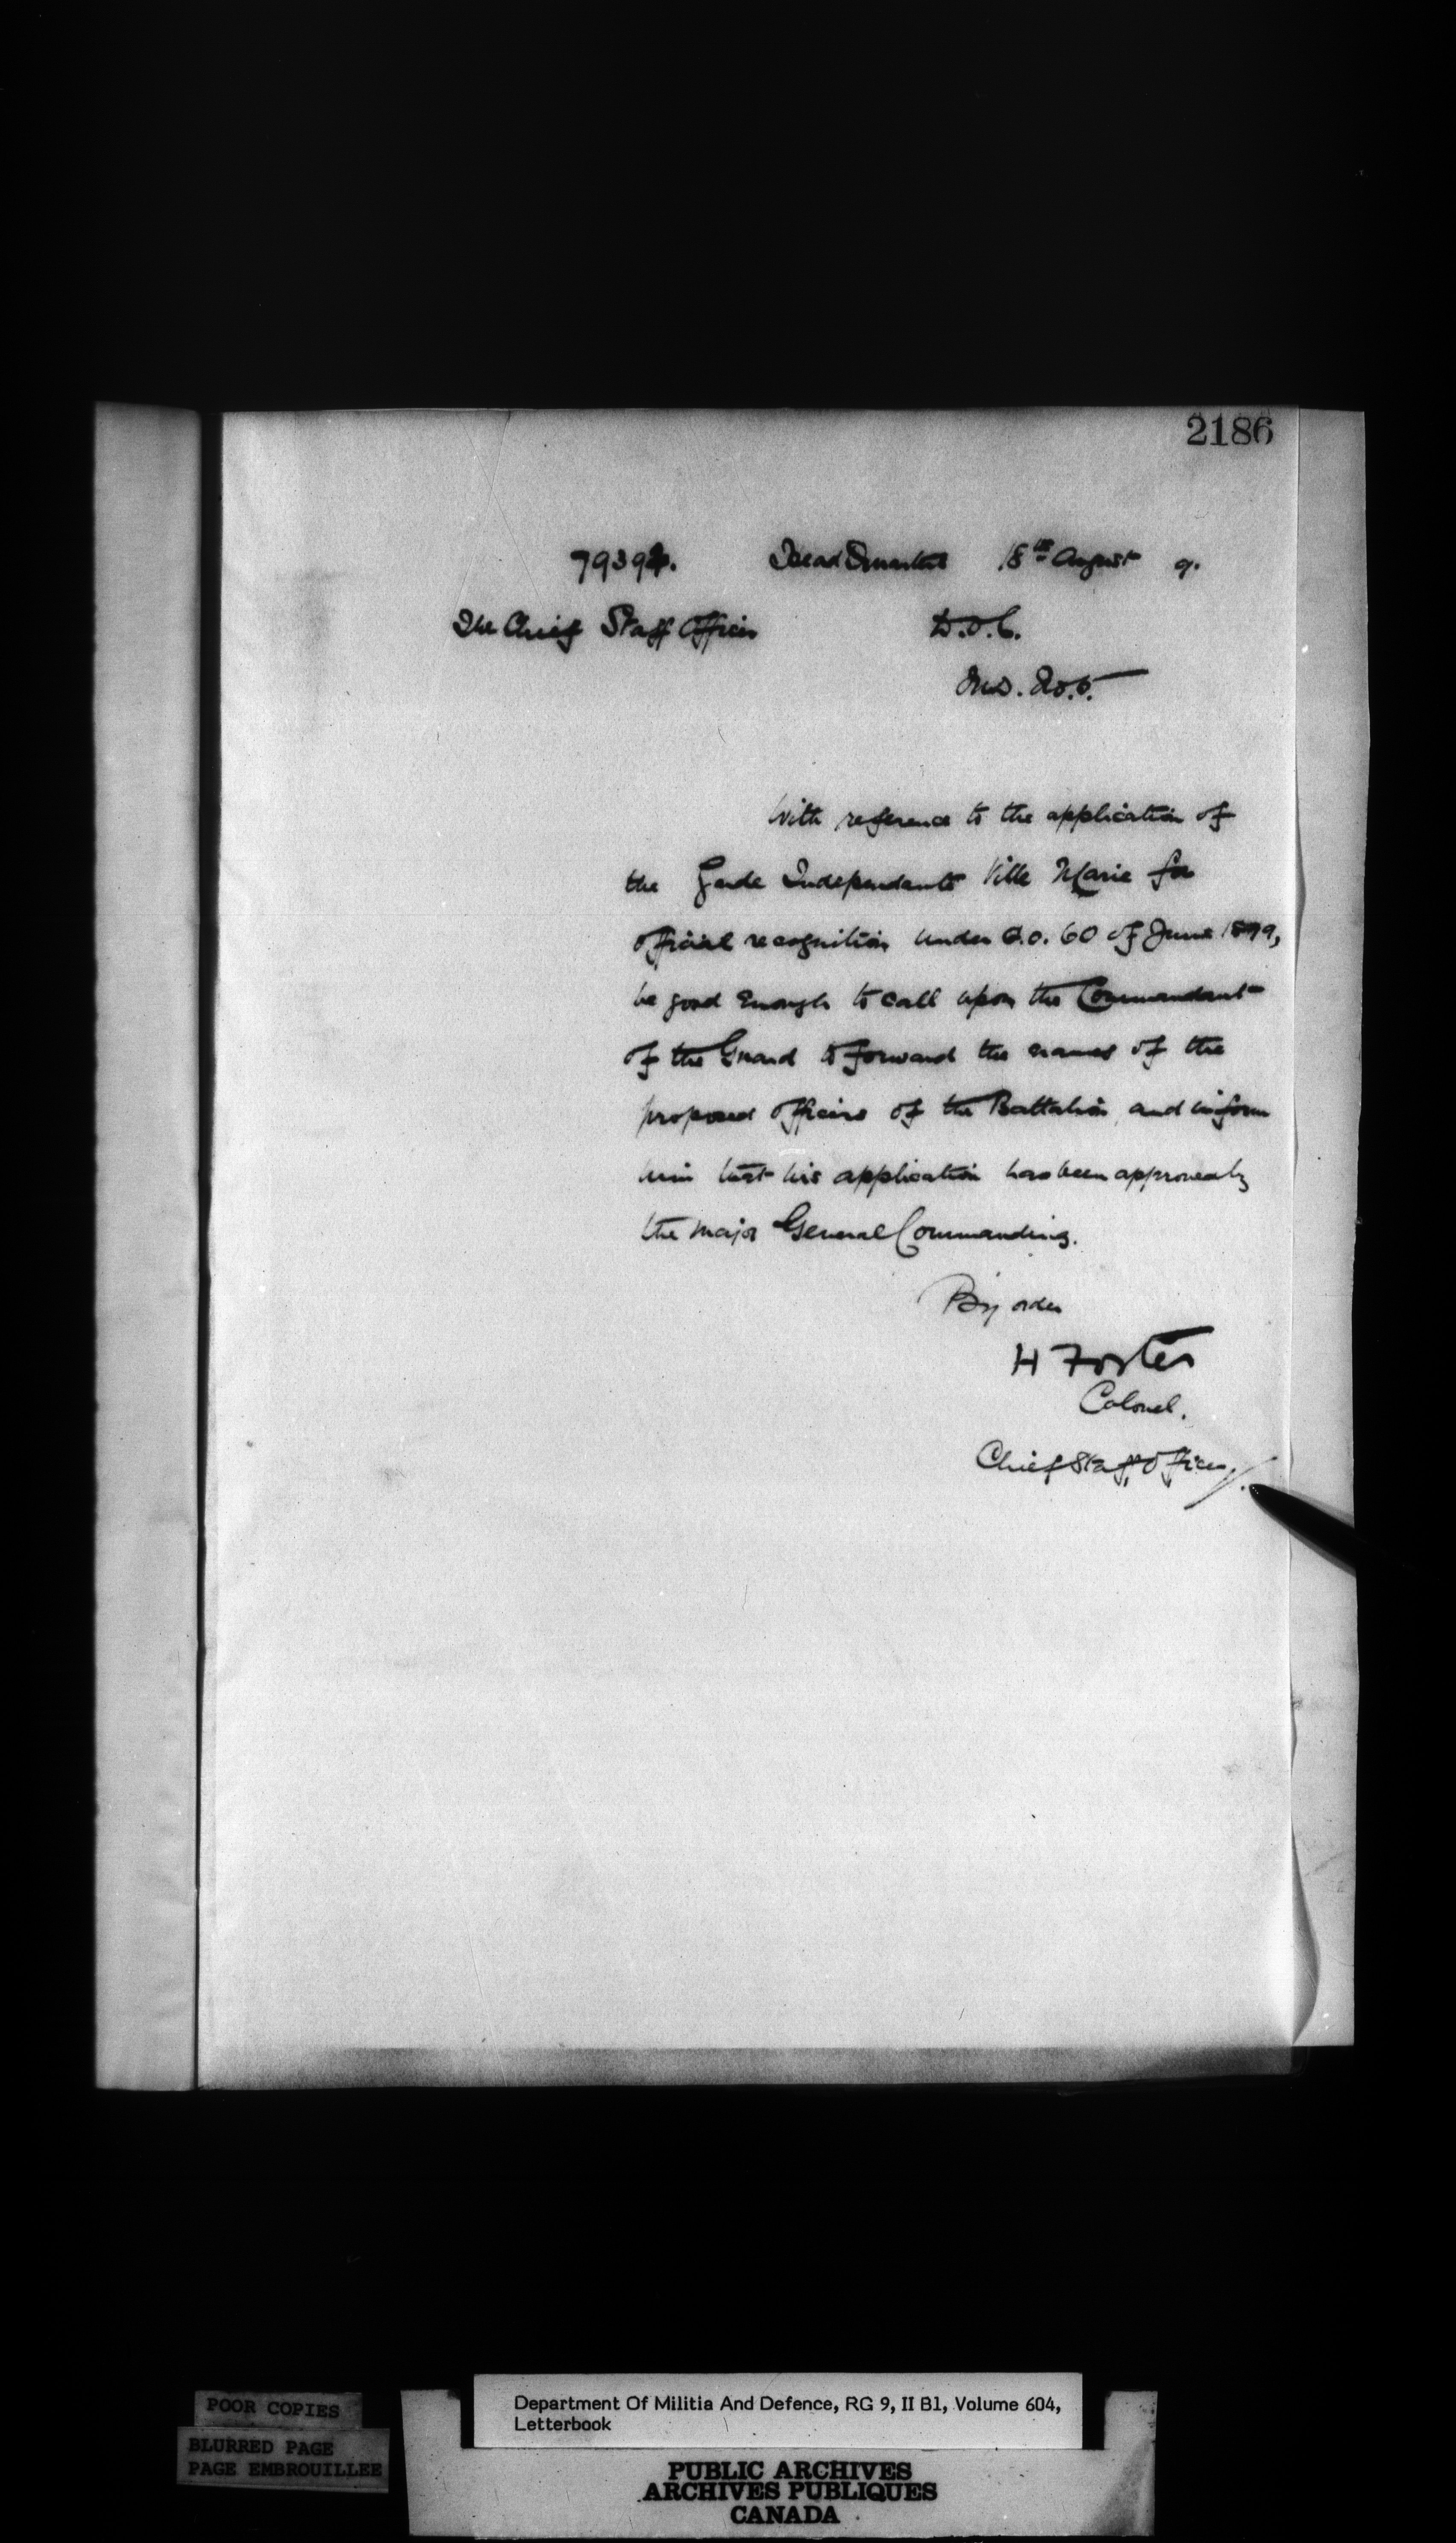 2186
79394. Head Quarters 18th August 9.
The Chief Staff Officer D.O.C.
M.D. No. 5.
With reference to the application of
the Garde Independante Ville Marie for
official recognition under G.O. 60 of June 1899,
be good enough to call upon the Commandant
of the Guard to forward the names of the
proposed officers of the Battalion, and inform
him that his application has been approved by
the Major General Commanding.
By order
H Foster
Colonel.
Chief Staff Officer.
POOR COPIES
BLURRED PAGE
PAGE EMBROUILLEE
Department Of Militia And Defence, RG 9, II B1, Volume 604,
Letterbook
PUBLIC ARCHIVES
ARCHIVES PUBLIQUES
CANADA